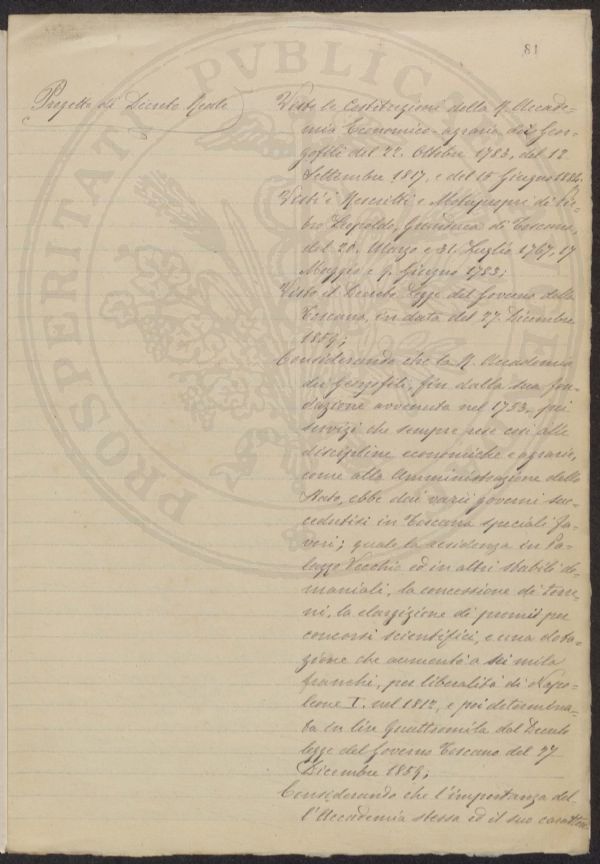 81
Progetto di Decreto Reale
Viste le Costituzioni della R. Accade-
mia Economico-agraria dei Geor-
gofili del 22. Ottobre 1783, del 12
Settembre 1817, e del 15 Giugno
Visti i Rescritti e Motuproprj di Pie-
tro Leopoldo, Granduca di Toscana,
del 20. Marzo e 31. Luglio 1767, 17
Maggio e 9. Giugno 1783;
Visto il Decreto Legge del Governo della
Toscana, in data del 27 Dicembre
1859;
Considerando che la R. Accademia
dei Georgofili, fin dalla sua fon-
dazione avvenuta nel 1753, pei
servizi che sempre rese così alle
discipline economiche e agrarie,
come alla Amministrazione dello
Stato, ebbe dai varii governi suc-
cedutisi in Toscana speciali fa-
vori; quale la residenza in Pa-
lazzo Vecchio ed in altri stabili de-
maniali, la concessione di terre-
ni, la elargizione di premii per
concorsi scientifici, e una dota-
zione che aumentò a sei mila
franchi, per liberalità di Napo-
leone I. nel 1812, e poi determina-
ta in lire quattromila dal Decreto
legge del Governo Toscano del 27
Dicembre 1859;
Considerando che l'importanza del-
l'Accademia stessa ed il suo carattere
PROSPERITATI PVBLICAE